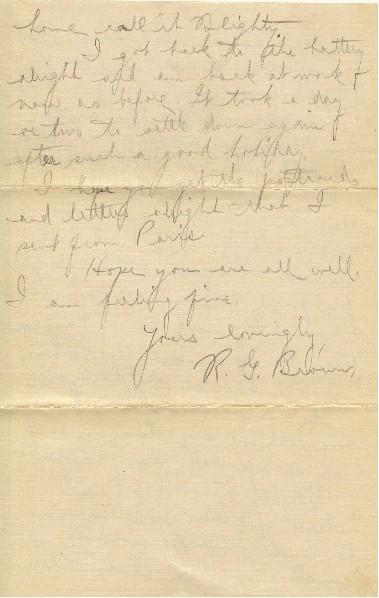 home call it Blighty.
I got back to the battery
alright and am back at work
now as before. It took a day
or two to settle down again
after such a good holiday.
I hope you get the postcards
and letters alright that I
sent from Paris
Hope you are all well.
I am feeling fine.
Yours lovingly,
R. G. Brown.